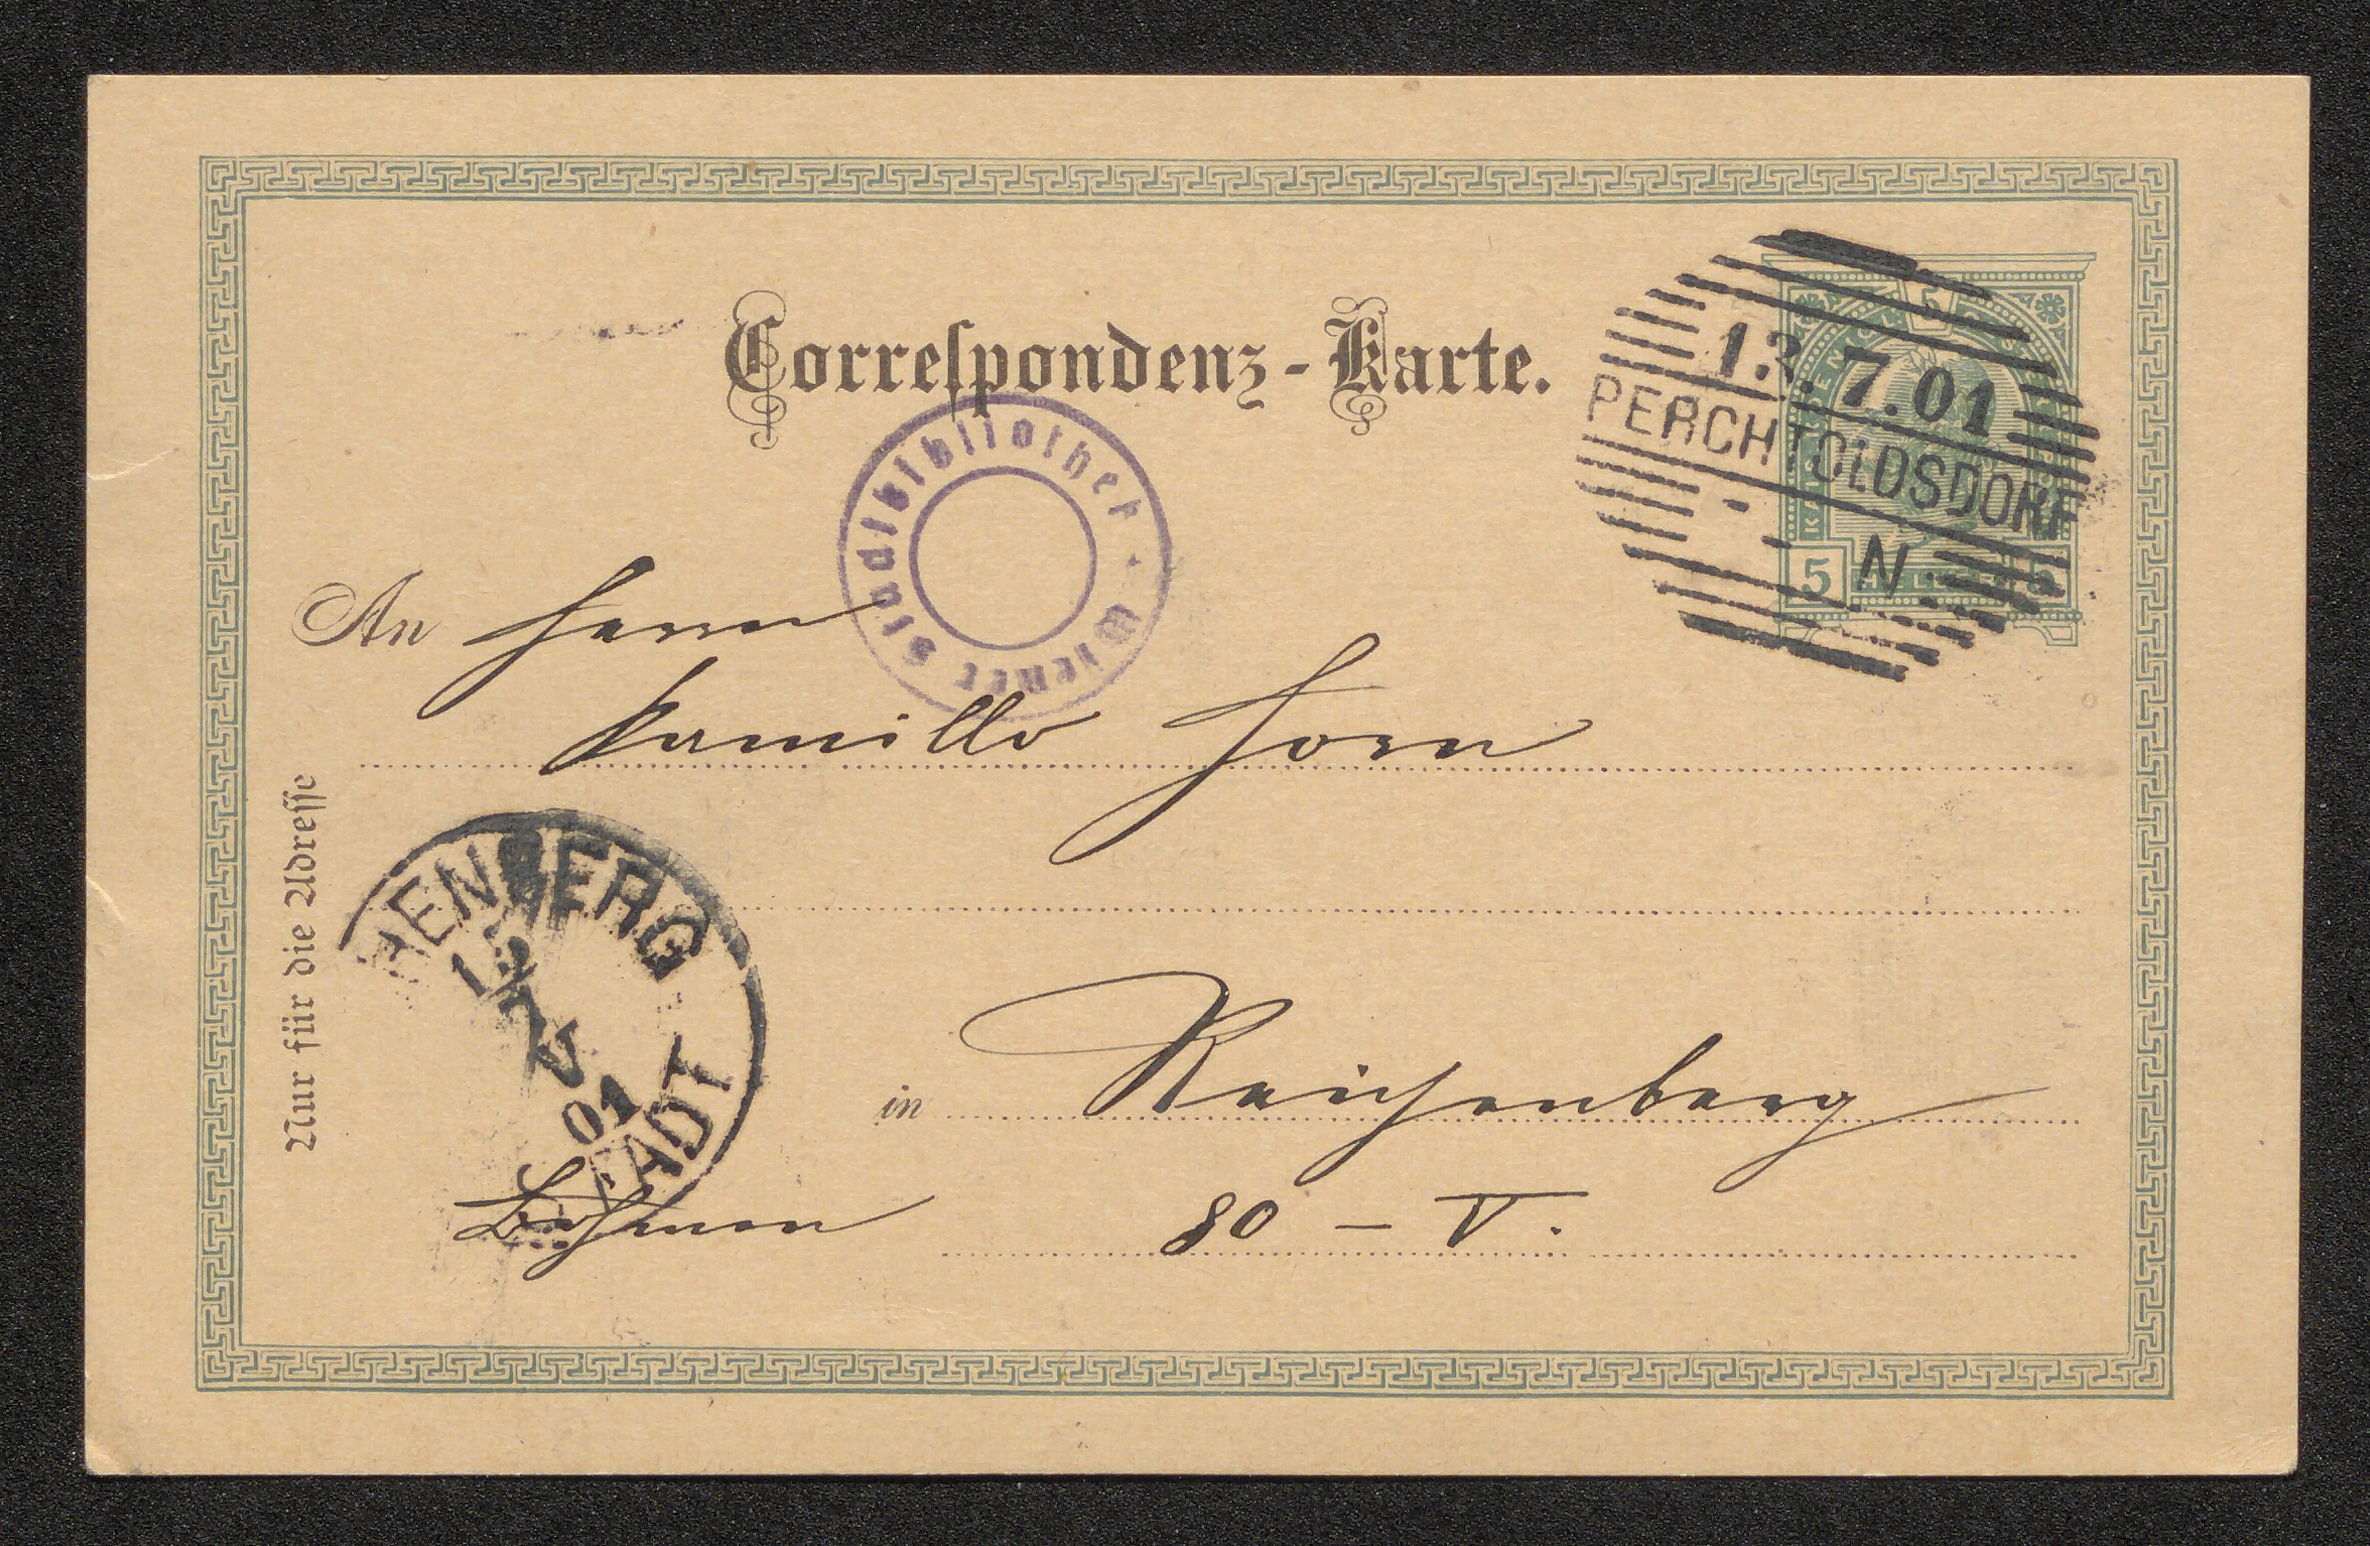 Correspondenz-Karte.
13. 7.01
PERCHTOLDSDORF
N
5
Wiener Stadtbibliothek
An Herrn
Kamillo Horn
Nur für die Adresse
HENBERG
7
V
01
TADT
in Reichenberg
Böhmen 80 – V.